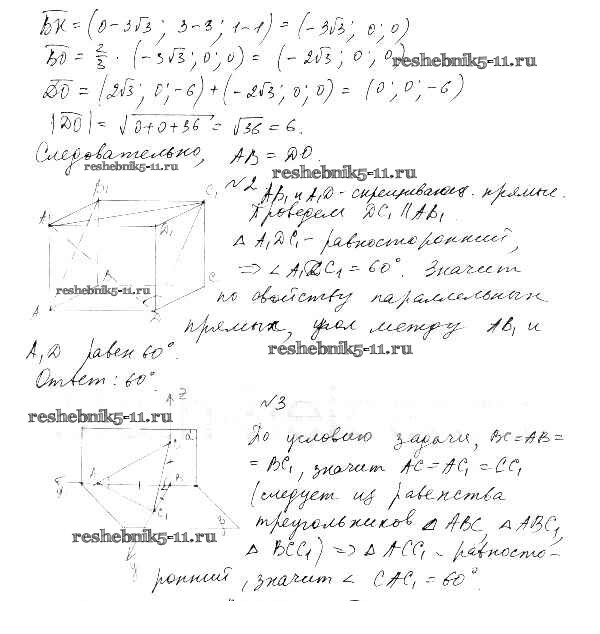 BK = (0-3√3; 3-3; 1-1) = (-3√3; 0; 0)
BO = 2/3 · (-3√3; 0; 0) = (-2√3; 0; 0)
reshebnik5-11.ru
DO = (2√3; 0; -6) + (-2√3; 0; 0) = (0; 0; -6)
|DO| = √0+0+36 = √36 = 6.
Следовательно, AB = DO.
reshebnik5-11.ru
reshebnik5-11.ru
№2 AB₁ и A₁D - скрещивающ. прямые.
Проведем DC₁ || AB₁.
Δ A₁DC₁ - равносторонний,
=> ∠ A₁DC₁ = 60°. Значит
по свойству параллельных
прямых, угол между AB₁ и
A₁D равен 60°.
Ответ: 60°.
B₁
C₁
A₁
D₁
C
A
reshebnik5-11.ru
reshebnik5-11.ru
reshebnik5-11.ru
№3
По условию задачи, BC = AB =
= BC₁, значит AC = AC₁ = CC₁
(следует из равенства
треугольников Δ ABC, Δ ABC₁,
Δ BCC₁) => Δ ACC₁ - равносто-
ронний, значит ∠ CAC₁ = 60°.
z
A
C₁
reshebnik5-11.ru